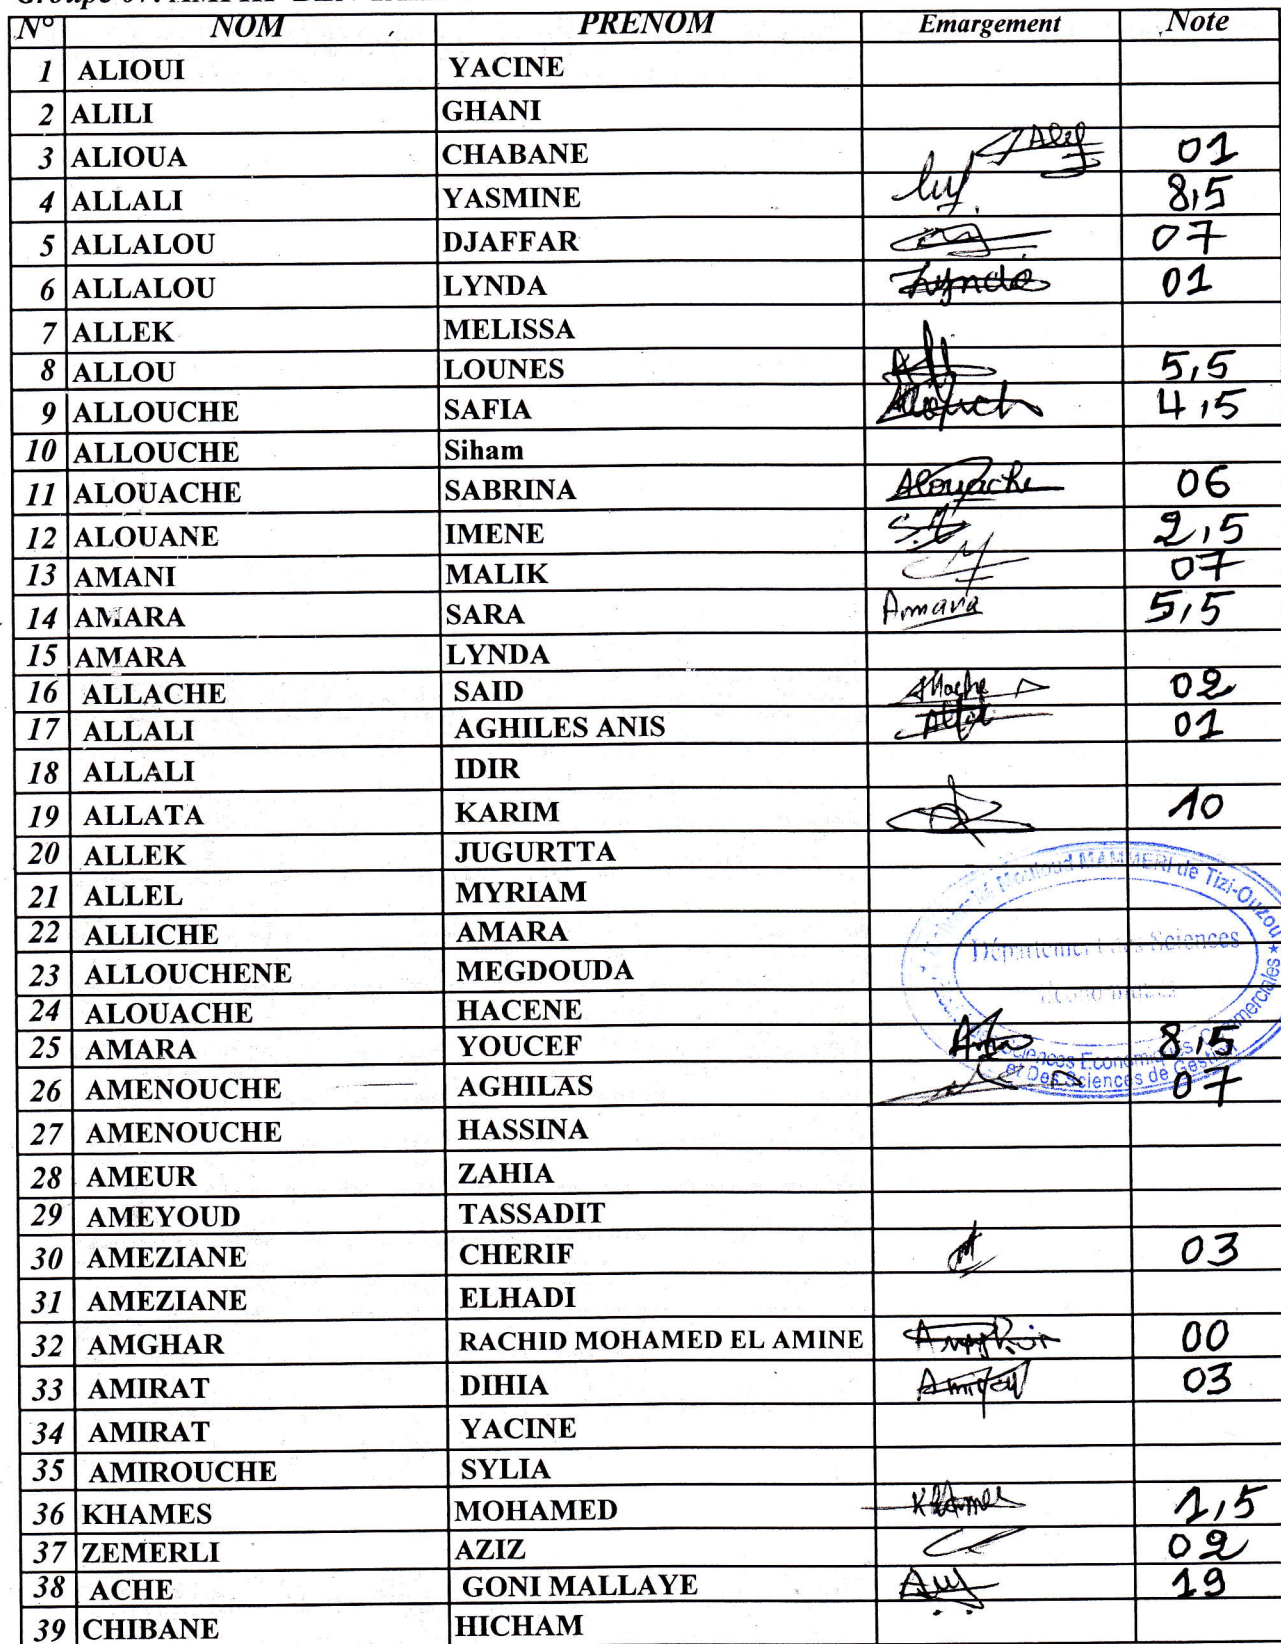 Groupe 07: AMPHI BEN
N° NOM PRENOM Emargement Note
1 ALIOUI YACINE
2 ALILI GHANI
3 ALIOUA CHABANE 01
4 ALLALI YASMINE 8,5
5 ALLALOU DJAFFAR 07
6 ALLALOU LYNDA Lynda 01
7 ALLEK MELISSA
8 ALLOU LOUNES 5,5
9 ALLOUCHE SAFIA 4,5
10 ALLOUCHE Siham
11 ALOUACHE SABRINA Alouache 06
12 ALOUANE IMENE 2,5
13 AMANI MALIK 07
14 AMARA SARA Amara 5,5
15 AMARA LYNDA
16 ALLACHE SAID Allache 02
17 ALLALI AGHILES ANIS 01
18 ALLALI IDIR
19 ALLATA KARIM 10
20 ALLEK JUGURTTA
21 ALLEL MYRIAM
22 ALLICHE AMARA
23 ALLOUCHENE MEGDOUDA
24 ALOUACHE HACENE
25 AMARA YOUCEF 8,5
26 AMENOUCHE AGHILAS 07
27 AMENOUCHE HASSINA
28 AMEUR ZAHIA
29 AMEYOUD TASSADIT
30 AMEZIANE CHERIF 03
31 AMEZIANE ELHADI
32 AMGHAR RACHID MOHAMED EL AMINE 00
33 AMIRAT DIHIA 03
34 AMIRAT YACINE
35 AMIROUCHE SYLIA
36 KHAMES MOHAMED Khames 1,5
37 ZEMERLI AZIZ 02
38 ACHE GONI MALLAYE 19
39 CHIBANE HICHAM
Mouloud MAMMERI de Tizi-Ouzou
Département des Sciences
Economiques
Sciences Economiques, Commerciales
et Des Sciences de Gestion